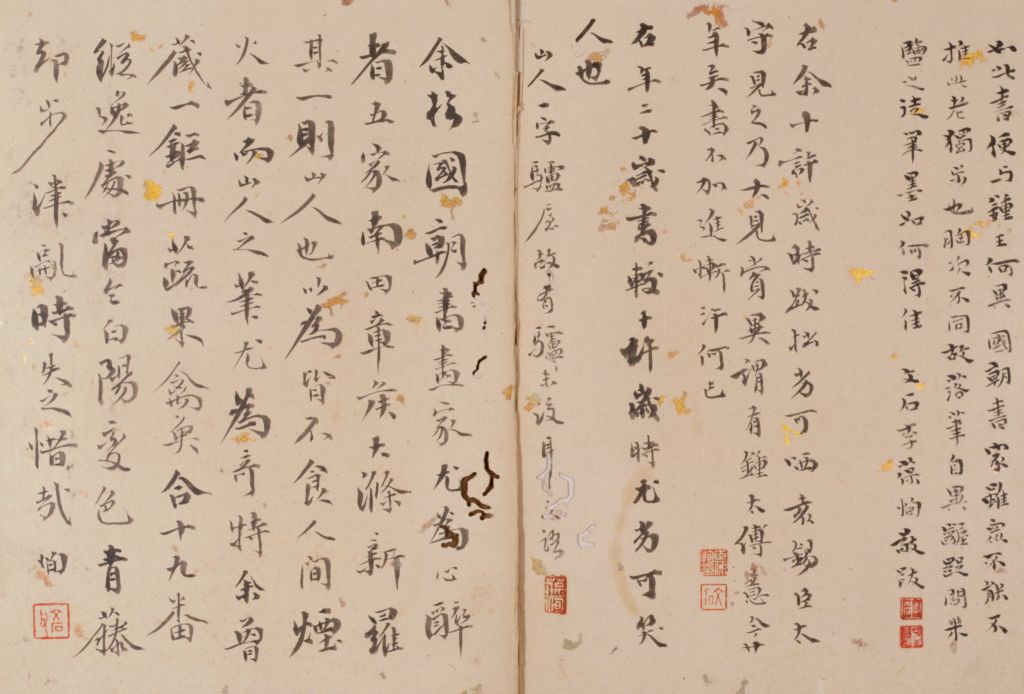 如此書便与鍾王何異國朝書家雖衆不能不
推此老獨步也胸次不同故落筆自異難與問米
鹽之徒筆墨如何得佳 文石李葆恂敬跋
右余十許歲時跋拙劣可哂袁錫臣太
守見之乃大見賞異謂有鍾太傅意今廿
年矣書不加進慚汗何已
右年二十歲書較十許歲時尤劣可笑
人也
山人一字驢屋故有驢
余於國朝書畫家尤為心醉
者五家南田章侯大滌新羅
其一則山人也以為皆不食人間煙
火者而山人之筆尤為奇特余曾
藏一鉅冊蔬果禽魚合十九番
縱逸處當令白陽變色青藤
却步津亂時失之惜哉 恂